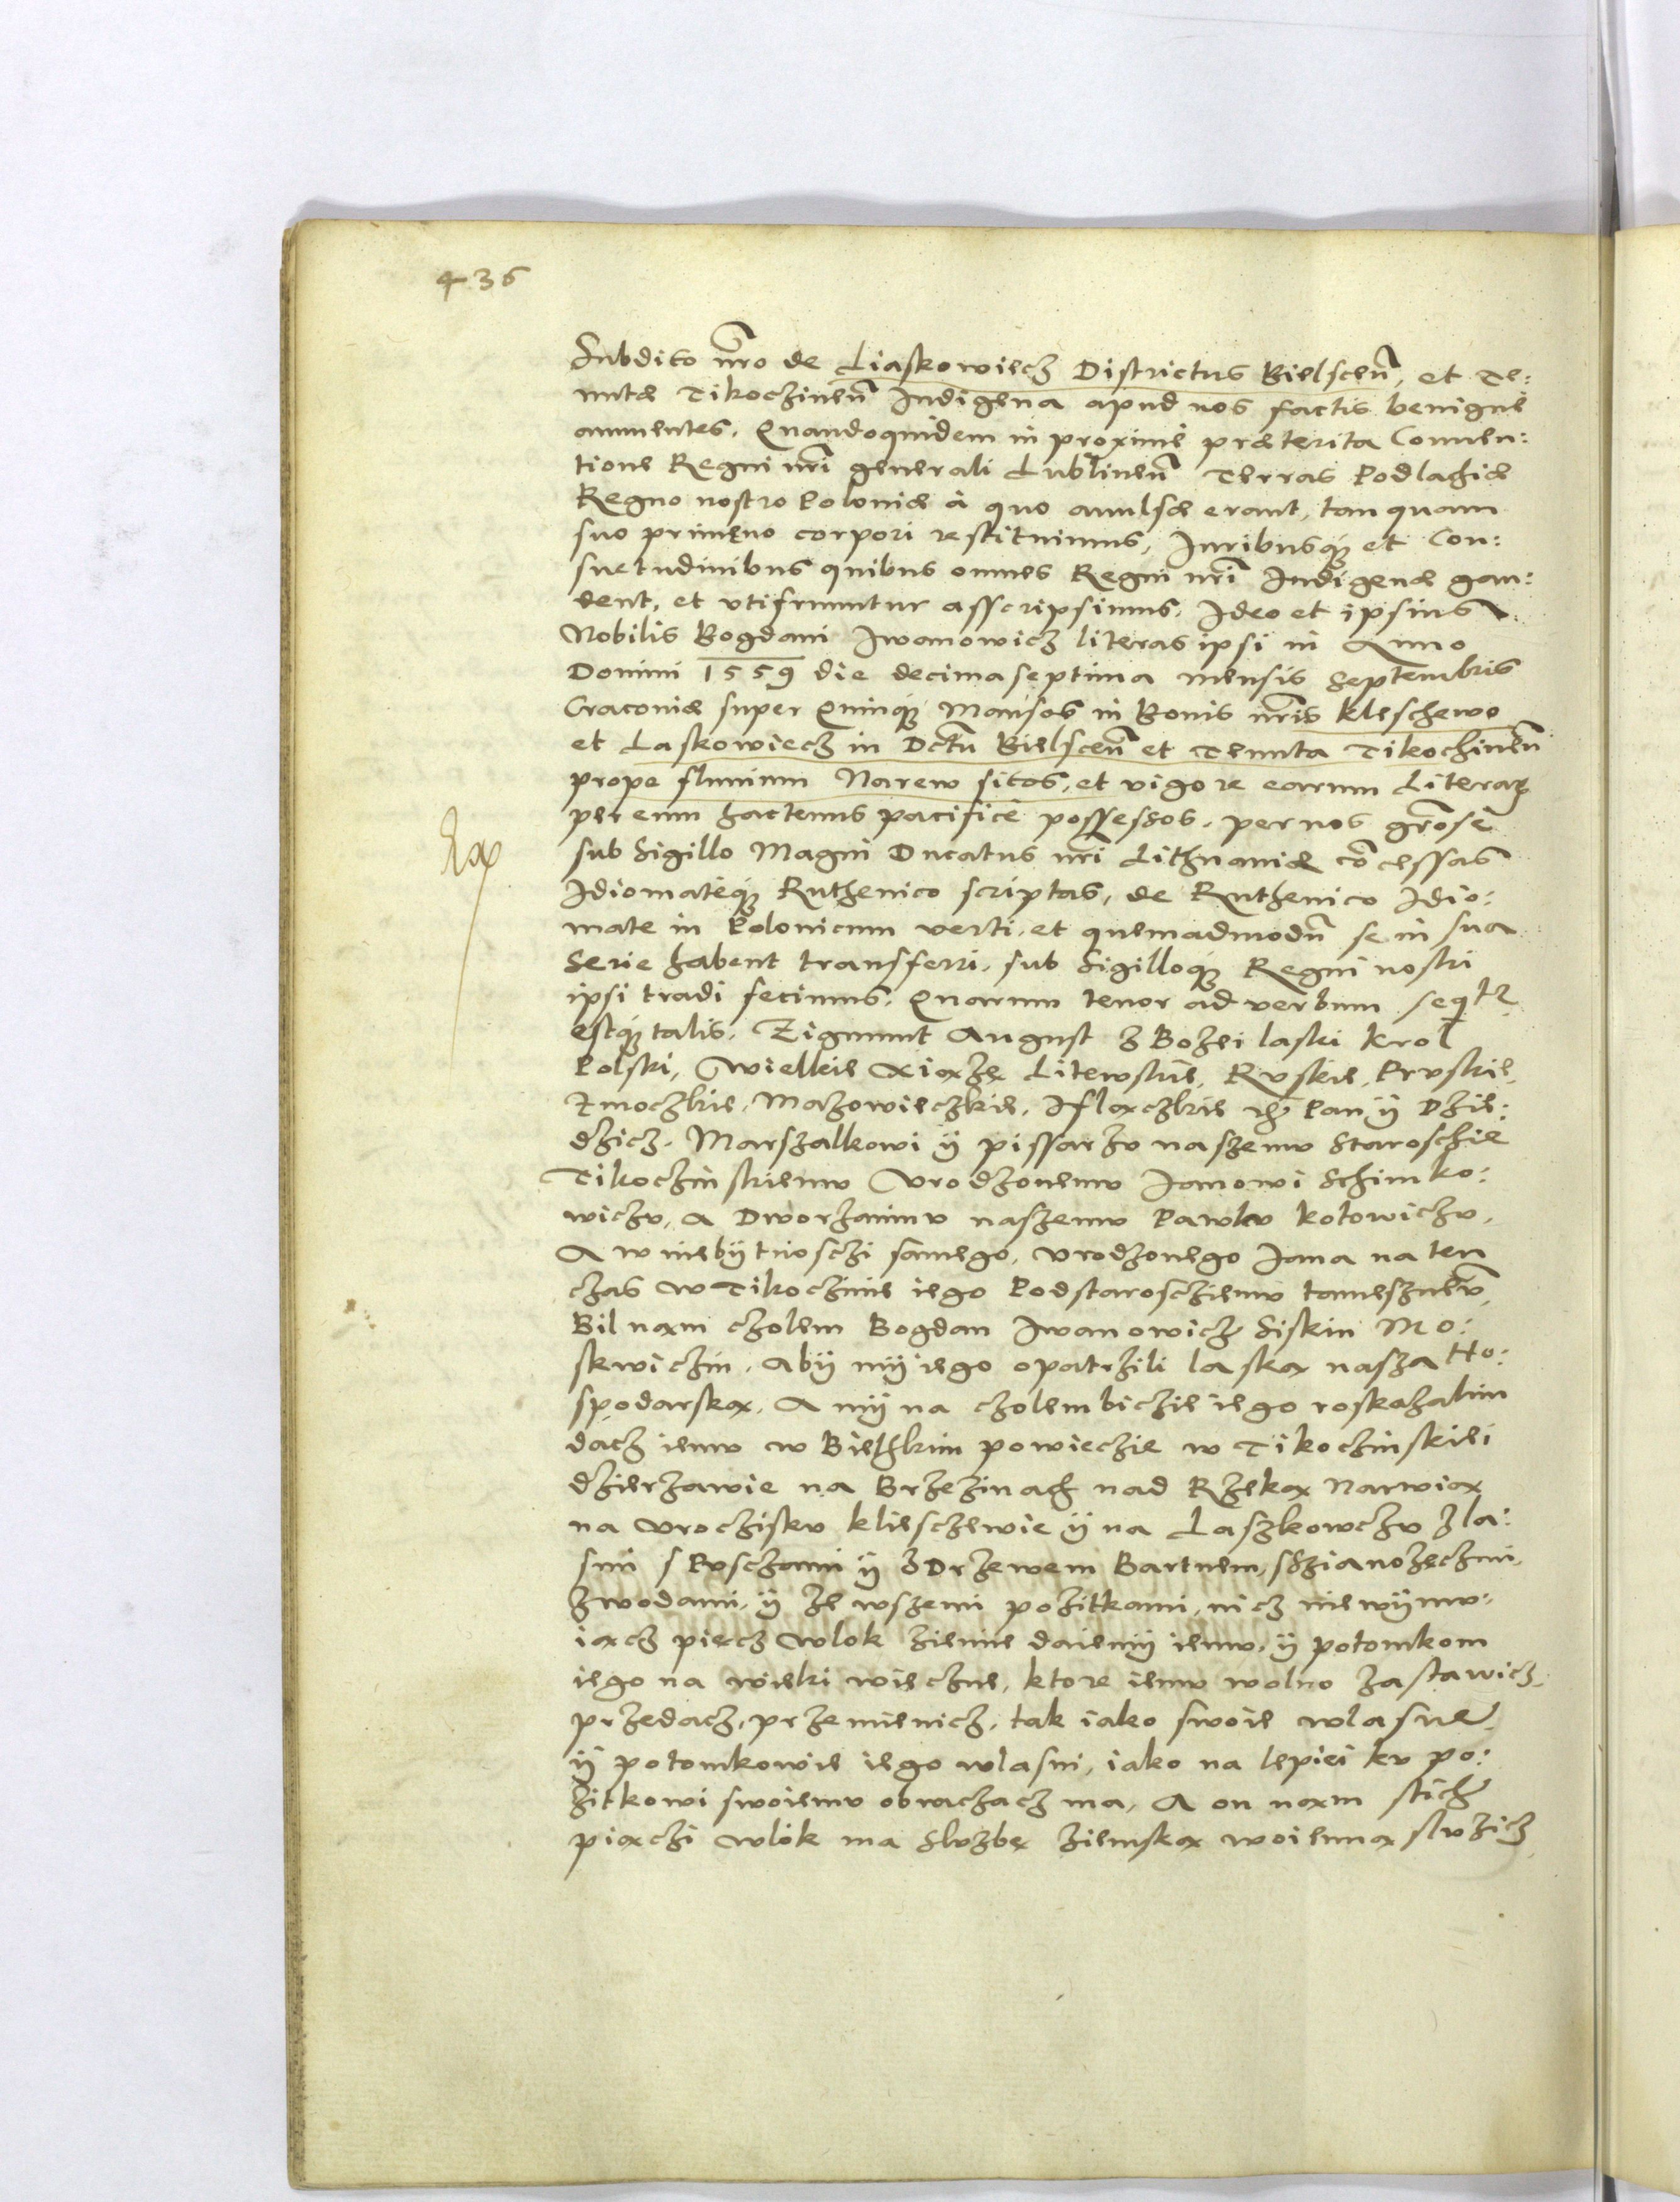 436
Subdito nro de Liaskowiecz Districtus Bielscen, et Te:
nutæ Tikoczinen Indigena apud nos factis benigne
annuentes. Quandoquidem in proxime præterita Conuen:
tione Regni nri generali Lublinen Terras Podlachiæ
Regno nostro Poloniæ à quo auulsæ erant, tan quam
suo primęuo corpori restituimus, Iuribusq et Con:
suetudinibus quibus omnes Regni nri Indigenæ gau:
dent, et vtifruuntur asscripsimus. Ideo et ipsius
Nobilis Bogdani Iwanowicz literas ipsi in Anno
Domini 1559 die decima septima mensis Septembris
Cracoviæ super Quinq Mansos in Bonis nris Kleschewo
et Laskowiecz in Dctu Bielscen et Tenuta Tikochinen
prope fluuium Narew sitos, et vigore earum Literar
per eum hactenus pacifice possessos. per nos grose
Exp
sub Sigillo Magni Ducatus nri Lithuaniæ cocessas
Idiomateq Ruthenico scriptas, de Ruthenico Idio:
mate in Polonicum verti. et quemadmodu se in sua
Serie habent transferri. sub Sigilloq Regni nostri
ipsi tradi fecimus. Quarum tenor ad verbum seqtr
estq talis. Zigmunt August z Bozei laski Krol
Polski, Wielkie Xiąże Litewskie, Ruskie, Pruskie,
Zmoczkie, Mazowieczkie, Iflaczkie ec Pan ÿ Dzie:
dzicz. Marszalkowi ÿ pissarzv naszemv Staroschie
Tikoczinskiemv Vrodzonemv Ianowi Schimko:
wiczv, A Dworzaninv naszemv Pawlv Kotowiczv,
A w niebÿtnosczi samego, vrodzonego Iana na ten
czas w Tikoczinie iego Podstarosczienv tameszнev,
Bil nam czolem Bogdan Iwanowicz Siskin Mo:
skwiczin, abÿ mÿ iego opatrzili laska nasza Ho:
spodarska, A mÿ na czolembiczie iego roskazalim
dacz iemv w Bielhkim powieczie w Tikochinskiei
dzierzawie na Brzezinach nad Rzeka Narwia
na vroczisku klieszewie ÿ na Laszkowczv z la:
smi s Pvsczami ÿ z Drzewem Bartnem, sszianozęczmi,
z wodami, ÿ ze wszemi pozitkami, nicz niewÿmv:
iącz piecz wlok ziemie daiemÿ iemv, ÿ potomkom
iego na wieki wieczne, ktore iemv wolno zastawicz,
przedacz, przemienicz, tak iako swoie wlasne
ÿ potomkowie iego wlasni, iako na lepiei kv po:
zitkowi swoiemv obraczacz ma, A on nam stich
piaczi wlok ma slvzbę ziemska woienna slvzicz